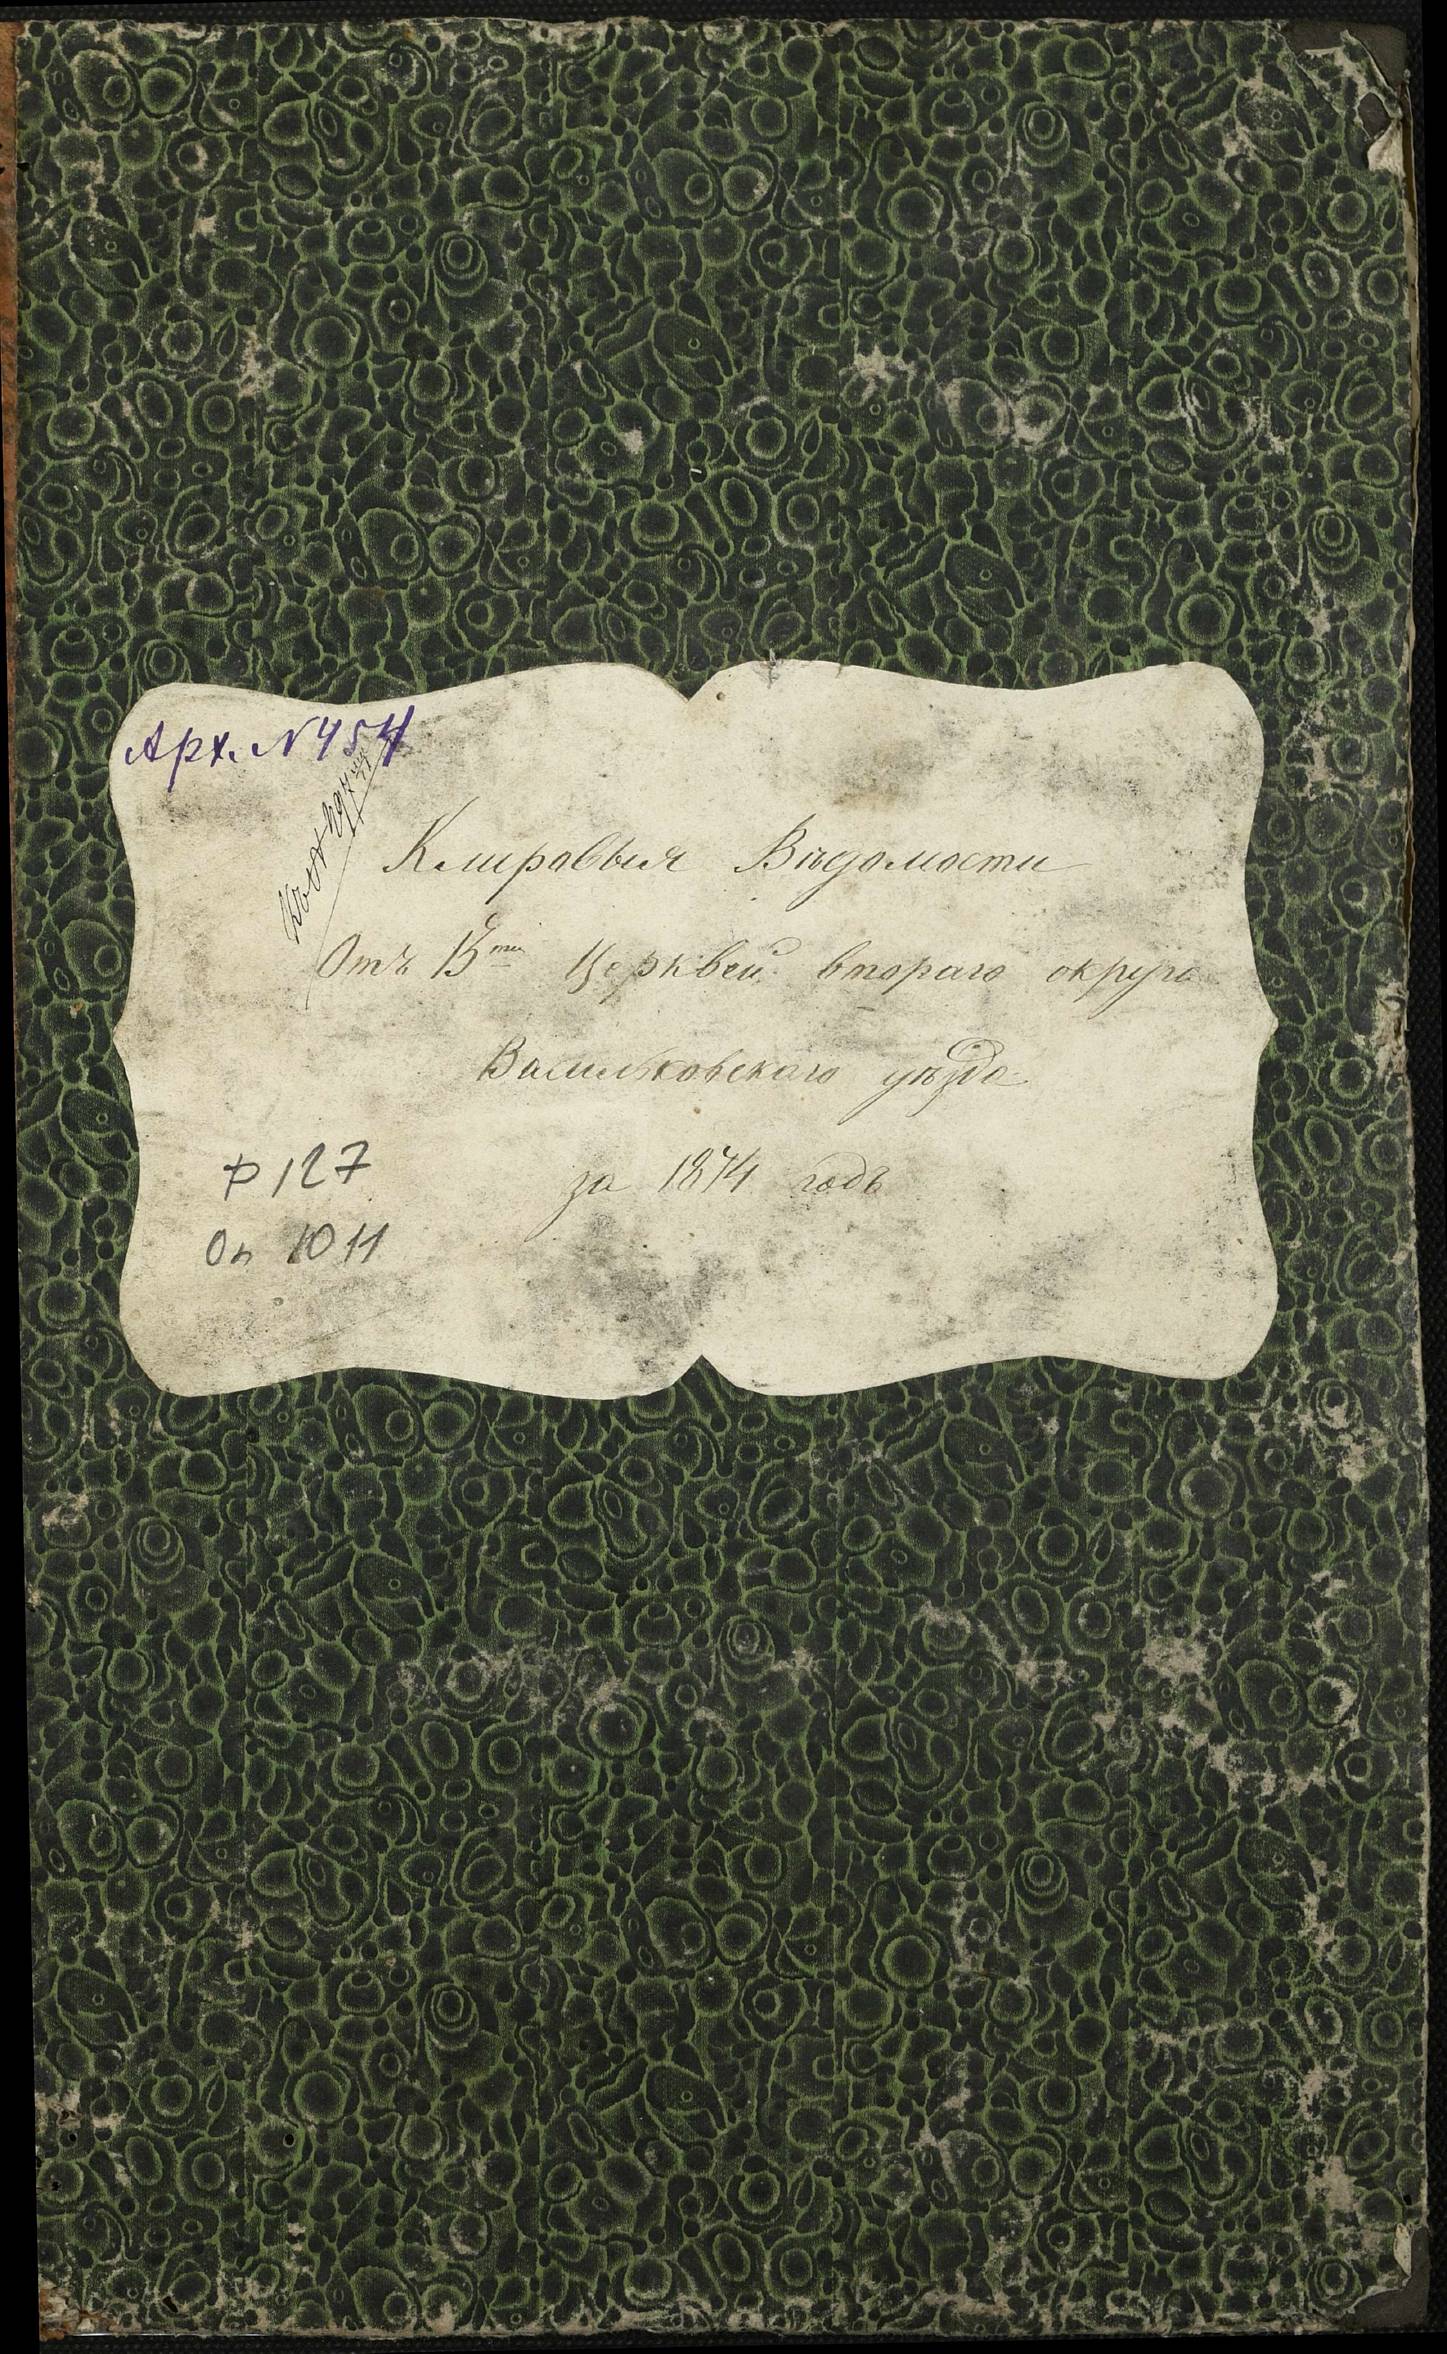 Арх. N 454
Клировыя Вѣдомости
Отъ 15ти Церквей втораго округа
Васильковскаго уѣзда
за 1874 годъ
Ф 127
Оп 1011